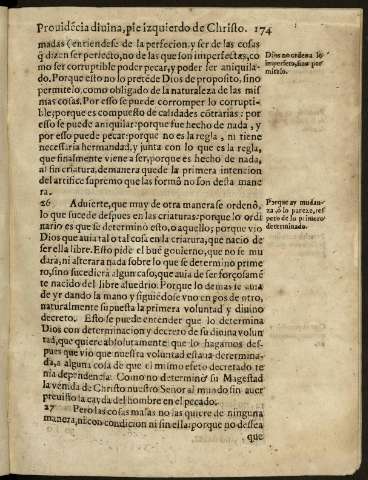 Prouidẽcia diuina, pie izquierdo de Christo. 174
madas (entiendese de la perfecion, y ser de las cosas
q̃ dizen ser perfecto, no de las que son imperfectas, co
mo ser corruptible poder pecar, y poder ser aniquila-
do. Porque esto no lo pretẽde Dios de proposito, sino
permitelo, como obligado de la naturaleza de las mis
mas cosas. Por esso se puede corromper lo corrupti-
ble; porque es compuesto de calidades cõtrarias: por
esso se puede aniquilar: porque fue hecho de nada, y
por esso puede pecar: porque no es la regla, ni tiene
necessaria hermandad, y junta con lo que es la regla,
que finalmente viene a ser, porque es hecho de nada,
ni sin criatura, de manera quede la primera intencion
del artifice supremo que las formò no son desta mane
ra.
Dios no ordena lo
imperfeto, sino per
mitelo.
26 Aduierte, que muy de otra manera se ordenò,
lo que sucede despues en las criaturas: porque lo ordi
nario es que se determinò esto, o aquello; porque vio
Dios que auia tal o tal cosa en la criatura, que naciò de
ser ella libre. Esto pide el buẽ gouierno, que no se mu
dara, ni alterara nada sobre lo que se determinò prime
ro, sino sucediera algun caso, que auia de ser forçosamẽ
te nacido del libre aluedrio. Porque lo demas se auia
de yr dando la mano y siguiẽdose vno en pos de otro,
naturalmente supuesta la primera voluntad y diuino
decreto. Esto se puede entender que lo determina
Dios con determinacion y decreto de su diuina volun
tad, que quiere absolutamente que lo hagamos des-
pues que vio que nuestra voluntad estaua determina-
da, a alguna cosa de que el mismo efeto decretado te
nia dependencia. Como no determinò su Magestad
la venida de Christo nuestro Señor al mundo sin auer
preuisto la cayda del hombre en el pecado.
Porque ay mudan-
za, o lo parece, res
peto de lo primero
determinado.
27 Pero las cosas malas no las quiere de ninguna
manera, ni con condicion ni sin ella: porque no dessea
que